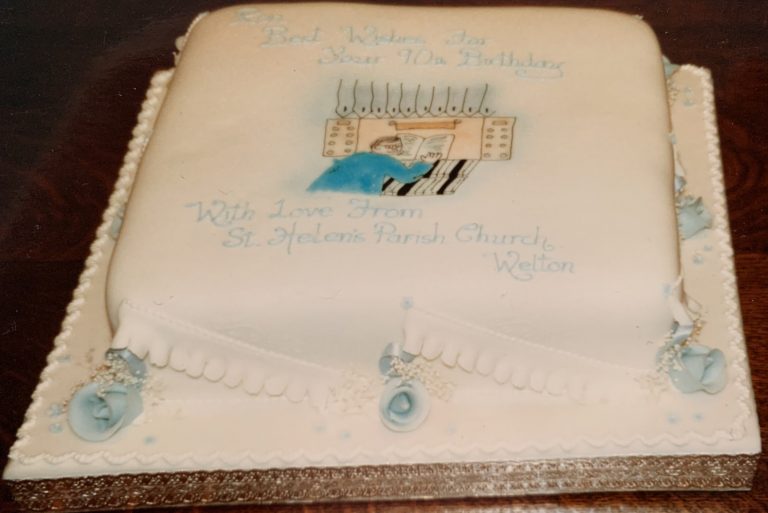 Ron
Best Wishes For
Your 90th Birthday
With Love From
St. Helen's Parish Church
Welton